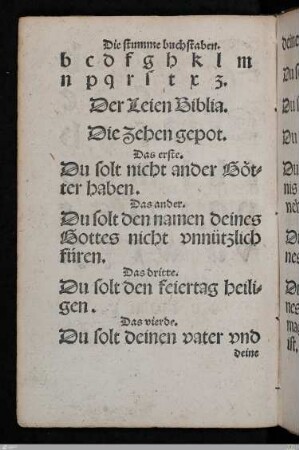 Die stumme buchstaben.
b c d f g h k l m
n p q r s t x z.
Der Leien Biblia.
Die Zehen gepot.
Das erste.
Du solt nicht ander Göt-
ter haben.
Das ander.
Du solt den namen deines
Gottes nicht vnnützlich
füren.
Das dritte.
Du solt den feiertag heili-
gen.
Das vierde.
Du solt deinen vater vnd
deine